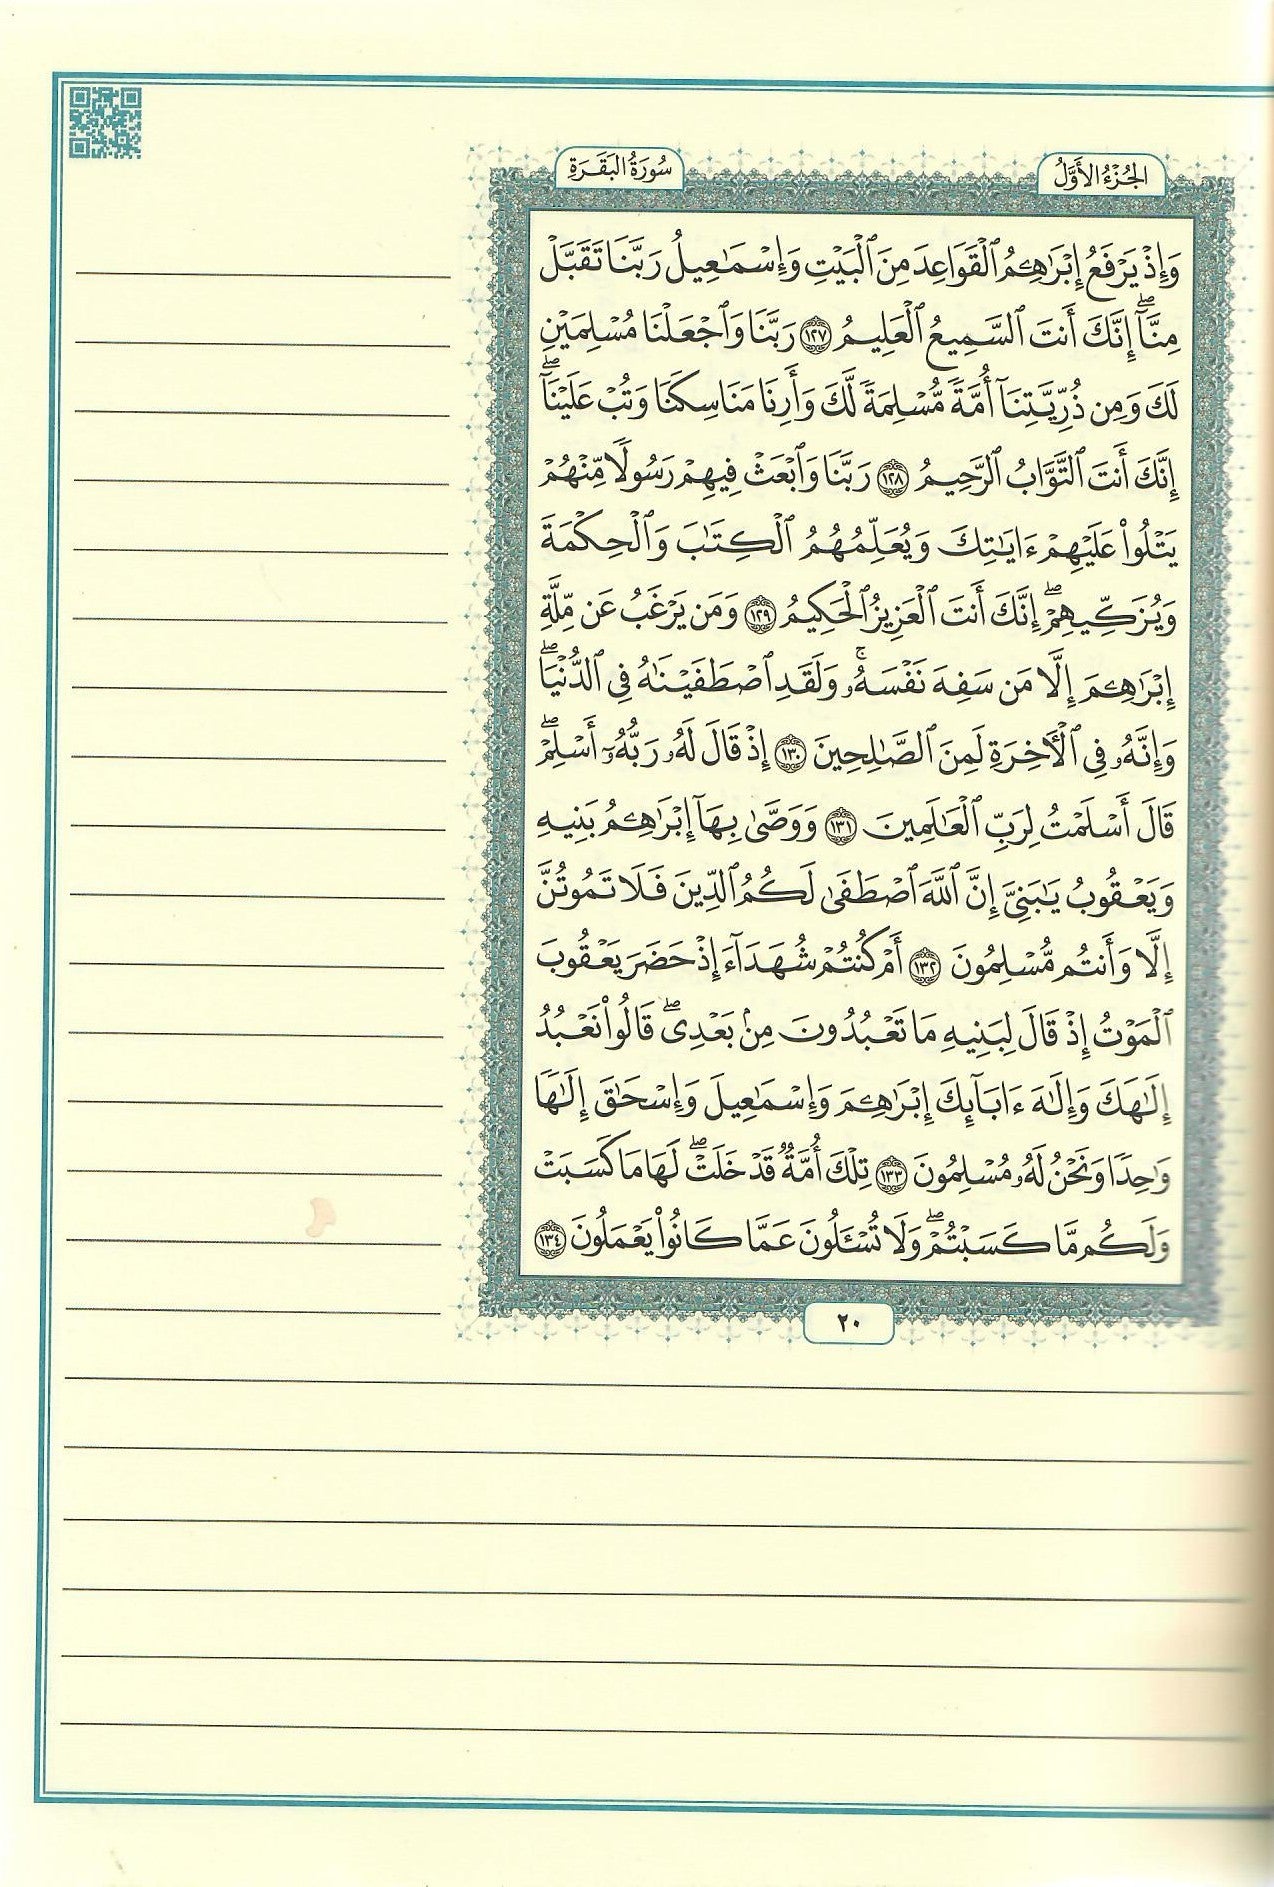 الجُزْءُ الأَوَّلُ
سُورَةُ البَقَرَةِ
وَإِذْ يَرْفَعُ إِبْرَٰهِـۧمُ ٱلْقَوَاعِدَ مِنَ ٱلْبَيْتِ وَإِسْمَٰعِيلُ رَبَّنَا تَقَبَّلْ
مِنَّآۖ إِنَّكَ أَنتَ ٱلسَّمِيعُ ٱلْعَلِيمُ ١٢٧ رَبَّنَا وَٱجْعَلْنَا مُسْلِمَيْنِ
لَكَ وَمِن ذُرِّيَّتِنَآ أُمَّةً مُّسْلِمَةً لَّكَ وَأَرِنَا مَنَاسِكَنَا وَتُبْ عَلَيْنَآۖ
إِنَّكَ أَنتَ ٱلتَّوَّابُ ٱلرَّحِيمُ ١٢٨ رَبَّنَا وَٱبْعَثْ فِيهِمْ رَسُولًا مِّنْهُمْ
يَتْلُوا۟ عَلَيْهِمْ ءَايَٰتِكَ وَيُعَلِّمُهُمُ ٱلْكِتَٰبَ وَٱلْحِكْمَةَ
وَيُزَكِّيهِمْۖ إِنَّكَ أَنتَ ٱلْعَزِيزُ ٱلْحَكِيمُ ١٢٩ وَمَن يَرْغَبُ عَن مِّلَّةِ
إِبْرَٰهِـۧمَ إِلَّا مَن سَفِهَ نَفْسَهُۥۚ وَلَقَدِ ٱصْطَفَيْنَٰهُ فِى ٱلدُّنْيَاۖ
وَإِنَّهُۥ فِى ٱلْأَخِرَةِ لَمِنَ ٱلصَّٰلِحِينَ ١٣٠ إِذْ قَالَ لَهُۥ رَبُّهُۥٓ أَسْلِمْۖ
قَالَ أَسْلَمْتُ لِرَبِّ ٱلْعَٰلَمِينَ ١٣١ وَوَصَّىٰ بِهَآ إِبْرَٰهِـۧمُ بَنِيهِ
وَيَعْقُوبُ يَٰبَنِىَّ إِنَّ ٱللَّهَ ٱصْطَفَىٰ لَكُمُ ٱلدِّينَ فَلَا تَمُوتُنَّ
إِلَّا وَأَنتُم مُّسْلِمُونَ ١٣٢ أَمْ كُنتُمْ شُهَدَآءَ إِذْ حَضَرَ يَعْقُوبَ
ٱلْمَوْتُ إِذْ قَالَ لِبَنِيهِ مَا تَعْبُدُونَ مِنۢ بَعْدِىۖ قَالُوا۟ نَعْبُدُ
إِلَٰهَكَ وَإِلَٰهَ ءَابَآئِكَ إِبْرَٰهِـۧمَ وَإِسْمَٰعِيلَ وَإِسْحَٰقَ إِلَٰهًا
وَٰحِدًا وَنَحْنُ لَهُۥ مُسْلِمُونَ ١٣٣ تِلْكَ أُمَّةٌ قَدْ خَلَتْۖ لَهَا مَا كَسَبَتْ
وَلَكُم مَّا كَسَبْتُمْۖ وَلَا تُسْـَٔلُونَ عَمَّا كَانُوا۟ يَعْمَلُونَ ١٣٤
٢٠